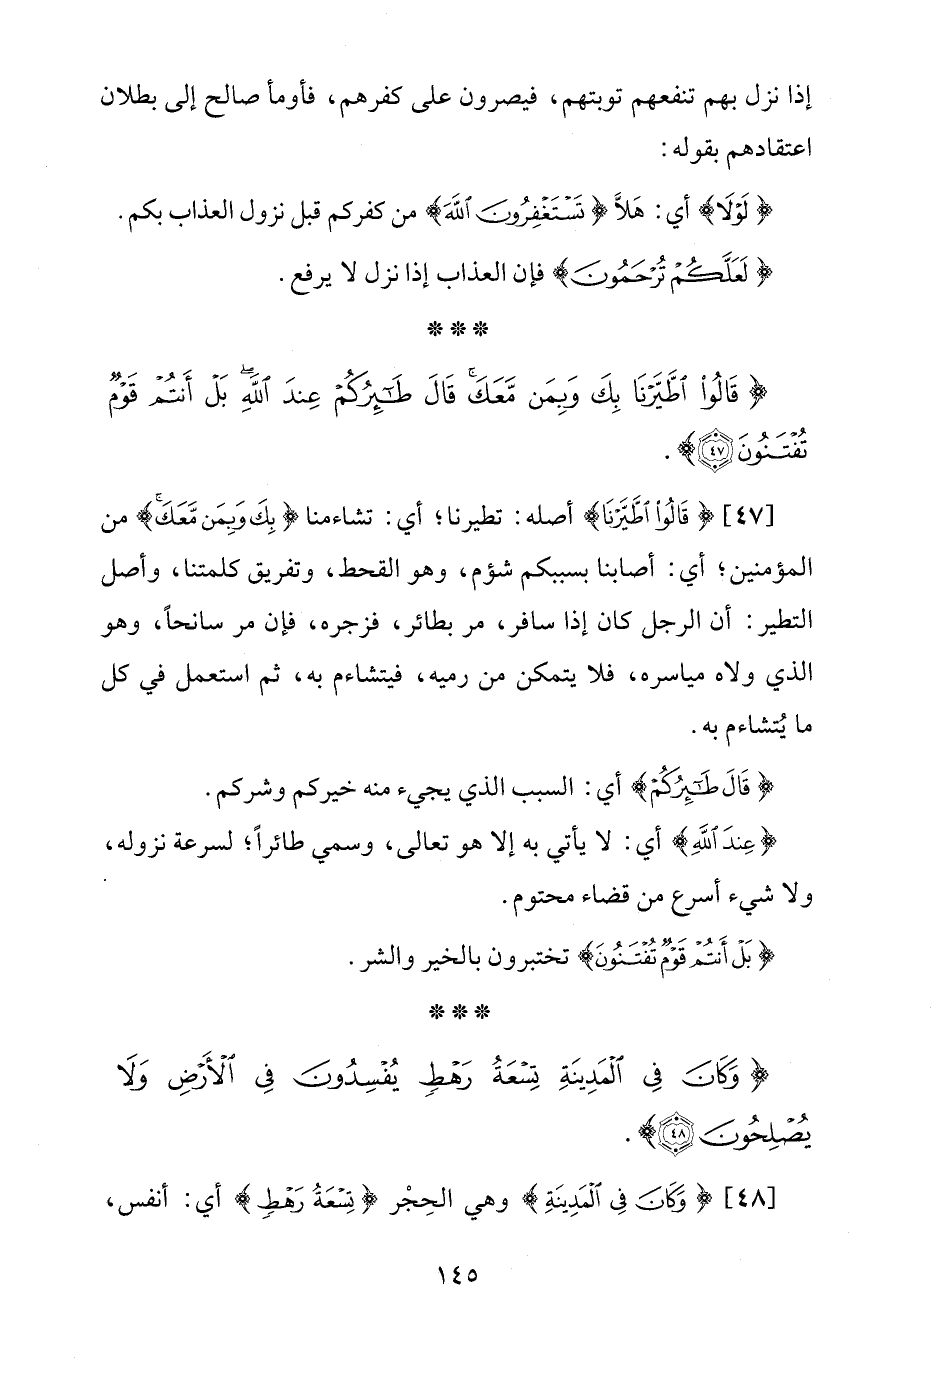 إذا نزل بهم تنفعهم توبتهم، فيصرون على كفرهم، فأومأ صالح إلى بطلان
اعتقادهم بقوله:
﴿لَوْلَا﴾ أي: هَلاَّ ﴿تَسْتَغْفِرُونَ ٱللَّهَ﴾ من كفركم قبل نزول العذاب بكم.
﴿لَعَلَّكُمْ تُرْحَمُونَ﴾ فإن العذاب إذا نزل لا يرفع.
***
﴿قَالُوا۟ ٱطَّيَّرْنَا بِكَ وَبِمَن مَّعَكَ ۚ قَالَ طَٰٓئِرُكُمْ عِندَ ٱللَّهِ ۖ بَلْ أَنتُمْ قَوْمٌ
تُفْتَنُونَ ٤٧﴾.
[٤٧] ﴿قَالُوا۟ ٱطَّيَّرْنَا﴾ أصله: تطيرنا؛ أي: تشاءمنا ﴿بِكَ وَبِمَن مَّعَكَ ۚ﴾ من
المؤمنين؛ أي: أصابنا بسببكم شؤم، وهو القحط، وتفريق كلمتنا، وأصل
التطير: أن الرجل كان إذا سافر، مر بطائر، فزجره، فإن مر سانحاً، وهو
الذي ولاه مياسره، فلا يتمكن من رميه، فيتشاءم به، ثم استعمل في كل
ما يُتشاءم به.
﴿قَالَ طَٰٓئِرُكُمْ﴾ أي: السبب الذي يجيء منه خيركم وشركم.
﴿عِندَ ٱللَّهِ﴾ أي: لا يأتي به إلا هو تعالى، وسمي طائراً؛ لسرعة نزوله،
ولا شيء أسرع من قضاء محتوم.
﴿بَلْ أَنتُمْ قَوْمٌ تُفْتَنُونَ﴾ تختبرون بالخير والشر.
***
﴿وَكَانَ فِى ٱلْمَدِينَةِ تِسْعَةُ رَهْطٍ يُفْسِدُونَ فِى ٱلْأَرْضِ وَلَا
يُصْلِحُونَ ٤٨﴾.
[٤٨] ﴿وَكَانَ فِى ٱلْمَدِينَةِ﴾ وهي الحِجْر ﴿تِسْعَةُ رَهْطٍ﴾ أي: أنفس،
١٤٥